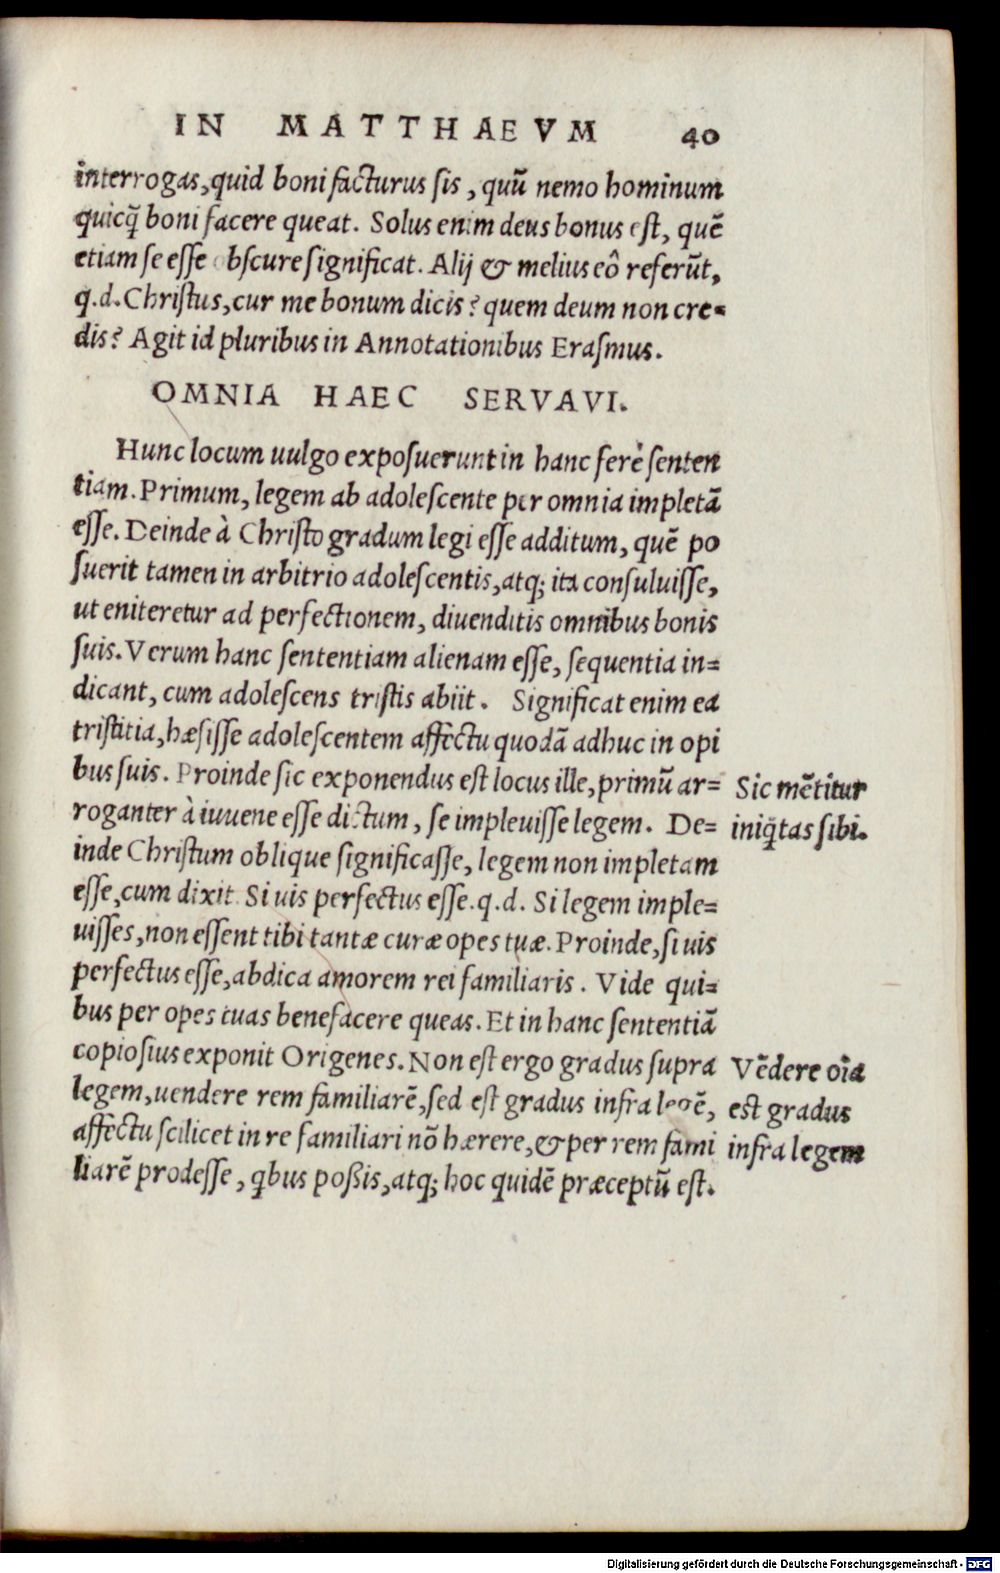 IN MATTHAEVM 40
interrogas, quid boni facturus sis, quū nemo hominum
quicq̄ boni facere queat. Solus enim deus bonus est, quē
etiam se esse obscure significat. Alij & melius eô referūt,
q.d. Christus, cur me bonum dicis? quem deum non cre=
dis? Agit id pluribus in Annotationibus Erasmus.
OMNIA HAEC SERVAVI.
Hunc locum uulgo exposuerunt in hanc ferè senten
tiam. Primum, legem ab adolescente per omnia impletā
esse. Deinde à Christo gradum legi esse additum, quē po
suerit tamen in arbitrio adolescentis, atq; ita consuluisse,
ut eniteretur ad perfectionem, diuenditis omnibus bonis
suis. Verum hanc sententiam alienam esse, sequentia in=
dicant, cum adolescens tristis abiit. Significat enim ea
tristitia, hæsisse adolescentem affectu quodā adhuc in opi
bus suis. Proinde sic exponendus est locus ille, primū ar=
roganter à iuuene esse dictum, se impleuisse legem. De=
inde Christum oblique significasse, legem non impletam
esse, cum dixit. Si uis perfectus esse. q.d. Si legem imple=
uisses, non essent tibi tantæ curæ opes tuæ. Proinde, si uis
perfectus esse, abdica amorem rei familiaris. Vide qui=
bus per opes tuas benefacere queas. Et in hanc sententiā
copiosius exponit Origenes. Non est ergo gradus supra
legem, uendere rem familiarē, sed est gradus infra legē,
affectu scilicet in re familiari nō hærere, & per rem fami
liarē prodesse, qbus poßis, atq; hoc quidē præceptū est.
Sic mētitur
iniq̄tas sibi.
Vēdere oīa
est gradus
infra legem
Digitalisierung gefördert durch die Deutsche Forschungsgemeinschaft - DFG